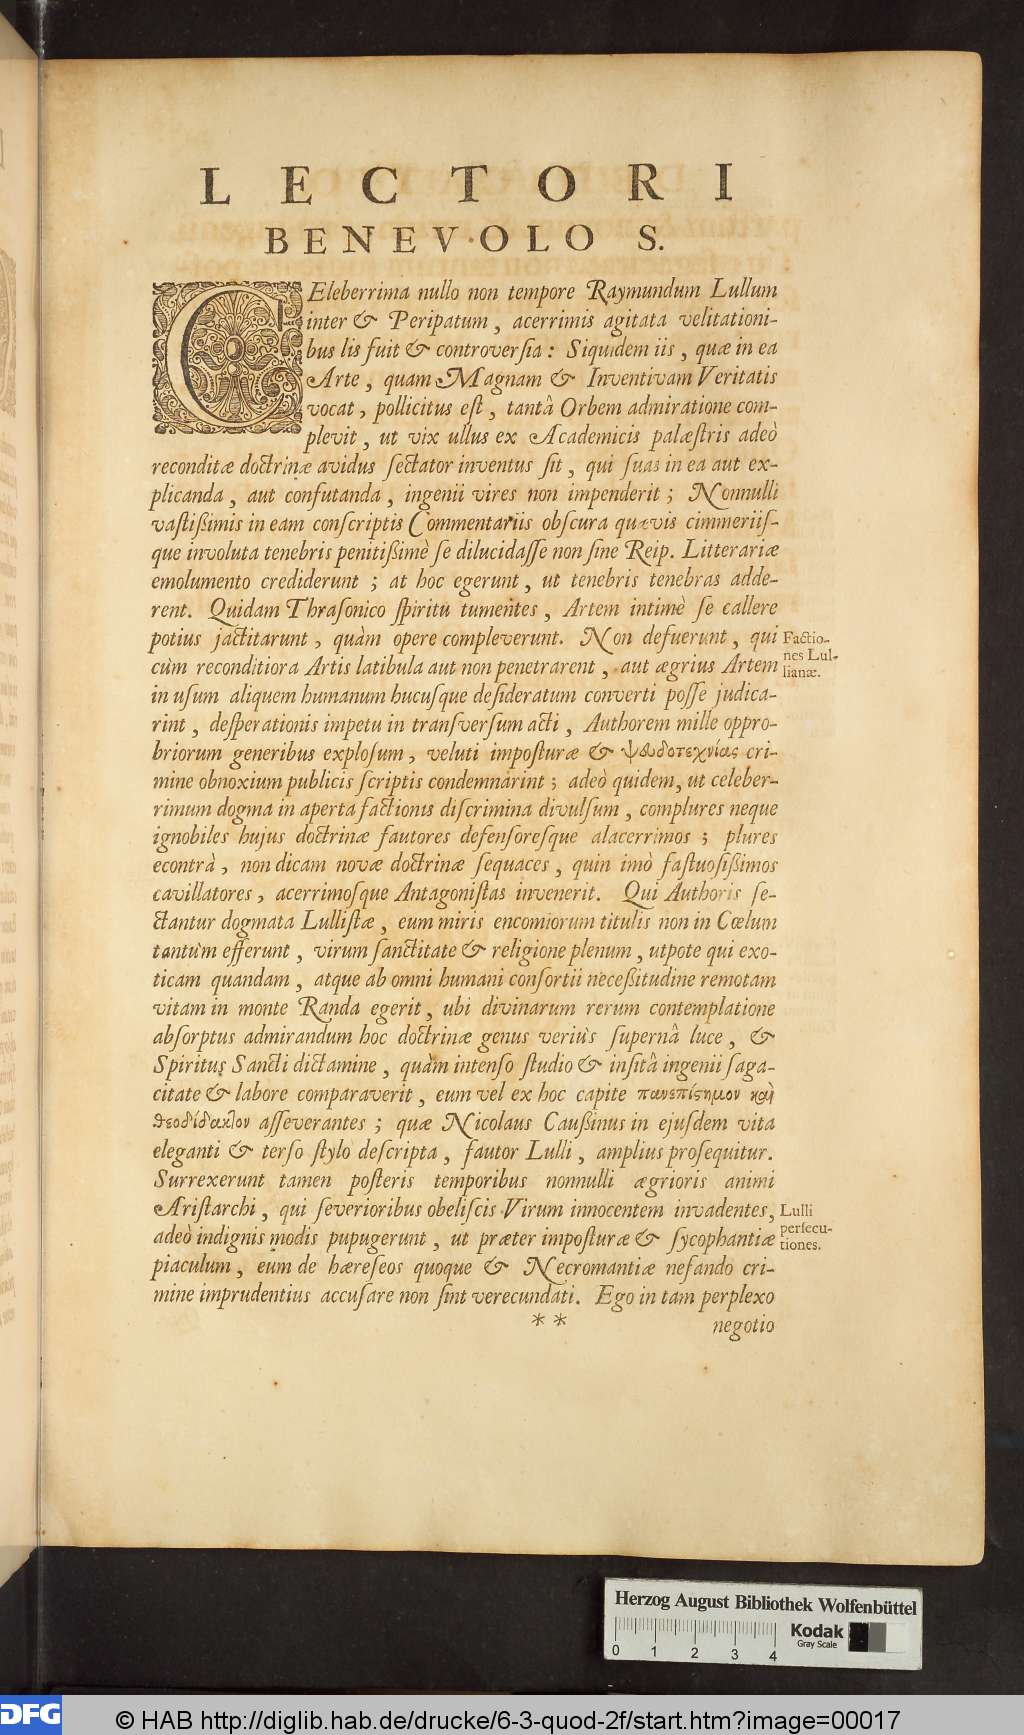 LECTORI
BENEVOLO S.
CEleberrima nullo non tempore Raymundum Lullum
inter & Peripatum, acerrimis agitata velitationi-
bus lis fuit & controversia: Siquidem iis, quæ in ea
Arte, quam Magnam & Inventivam Veritatis
vocat, pollicitus est, tantâ Orbem admiratione com-
plevit, ut vix ullus ex Academicis palæstris adeò
reconditæ doctrinæ avidus sectator inventus sit, qui suas in ea aut ex-
plicanda, aut confutanda, ingenii vires non impenderit; Nonnulli
vastißimis in eam conscriptis Commentariis obscura quævis cimmeriis-
que involuta tenebris penitißimè se dilucidasse non sine Reip. Litterariæ
emolumento crediderunt; at hoc egerunt, ut tenebris tenebras adde-
rent. Quidam Thrasonico spiritu tumentes, Artem intimè se callere
potius jactitarunt, quàm opere compleverunt. Non defuerunt, qui
cùm reconditiora Artis latibula aut non penetrarent, aut ægrius Artem
in usum aliquem humanum hucusque desideratum converti posse judica-
rint, desperationis impetu in transversum acti, Authorem mille oppro-
briorum generibus explosum, veluti imposturæ & ψευδοτεχνίας cri-
mine obnoxium publicis scriptis condemnârint; adeò quidem, ut celeber-
rimum dogma in aperta factionis discrimina divulsum, complures neque
ignobiles hujus doctrinæ fautores defensoresque alacerrimos; plures
econtrà, non dicam novæ doctrinæ sequaces, quin imò fastuosißimos
cavillatores, acerrimosque Antagonistas invenerit. Qui Authoris se-
ctantur dogmata Lullistæ, eum miris encomiorum titulis non in Cœlum
tantùm efferunt, virum sanctitate & religione plenum, utpote qui exo-
ticam quandam, atque ab omni humani consortii neceßitudine remotam
vitam in monte Randa egerit, ubi divinarum rerum contemplatione
absorptus admirandum hoc doctrinæ genus veriùs supernâ luce, &
Spiritus Sancti dictamine, quàm intenso studio & insitâ ingenii saga-
citate & labore comparaverit, eum vel ex hoc capite πανεπίσημον καὶ
θεοδίδακτον asseverantes; quæ Nicolaus Caußinus in ejusdem vita
eleganti & terso stylo descripta, fautor Lulli, amplius prosequitur.
Surrexerunt tamen posteris temporibus nonnulli ægrioris animi
Aristarchi, qui severioribus obeliscis Virum innocentem invadentes,
adeò indignis modis pupugerunt, ut præter imposturæ & sycophantiæ
piaculum, eum de hæreseos quoque & Necromantiæ nefando cri-
mine imprudentius accusare non sint verecundati. Ego in tam perplexo
** negotio
Factio-
nes Lul-
lianæ.
Lulli
persecu-
tiones.
Herzog August Bibliothek Wolfenbüttel
Kodak
Gray Scale
0 1 2 3 4
DFG
© HAB http://diglib.hab.de/drucke/6-3-quod-2f/start.htm?image=00017